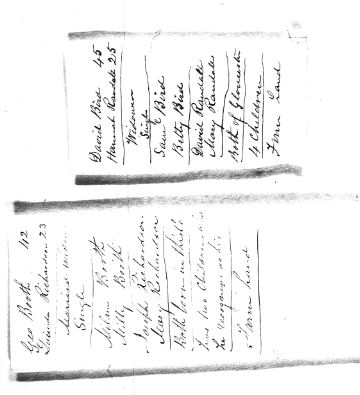 David Bird 45
Hannah Randale 25
Widower
Single
Sam E Bird
Betty Bird
David Randale
Mary Randale
Both of Gloucester
4 Children
Town land
Geo Booth 42
Richardson 23
Single
Booth
Milly Booth
Joseph Richardson
Mary Richardson
Both born in this
has two children
as his
Town land